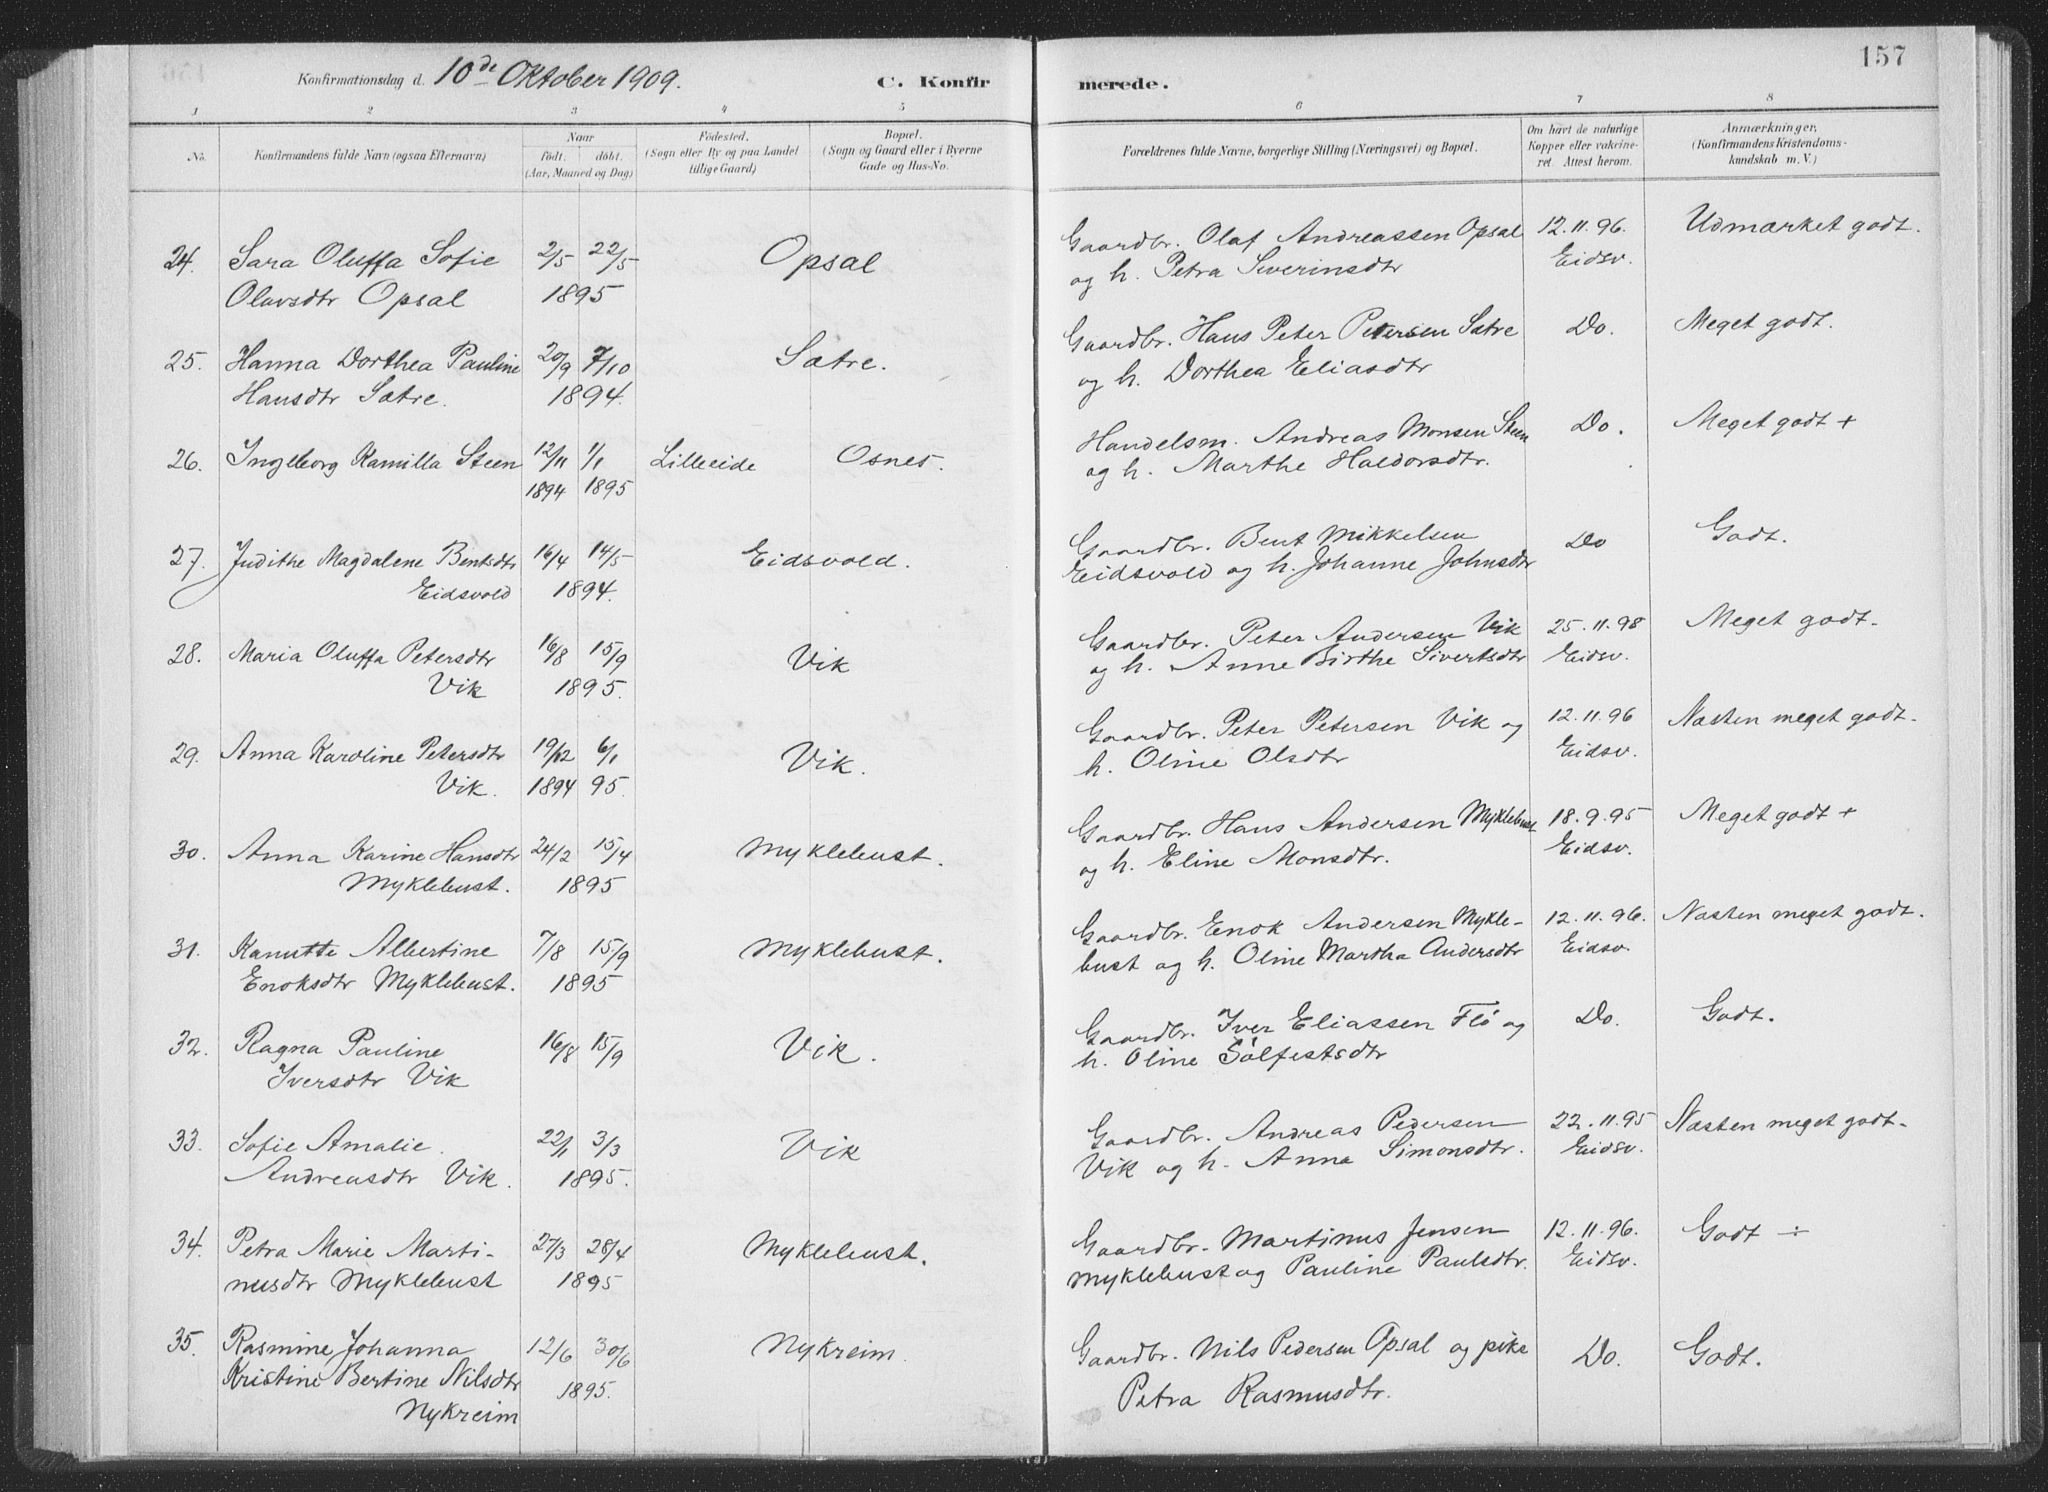 157
Konfirmationsdag d. 10de Oktober 1909.
C. Konfirmerede.
1 2 3 4 5 6 7 8
No. Konfirmandens fulde Navn (ogsaa Efternavn) Naar födt. döbt. (Aar, Maaned og Dag) Födested. (Sogn eller By og paa Landet tillige Gaard) Bopæl. (Sogn og Gaard eller i Byerne Gade og Hus-No. Forældrenes fulde Navne, borgerlige Stilling (Næringsvei) og Bopæl. Om havt de naturlige Kopper eller vakcineret. Attest herom. Anmærkninger. (Konfirmandens Kristendomskundskab m. V.)
24. Sara Oluffa Sofie 2/5 22/5 Opsal Gaardbr. Olaf Andreassen Opsal 12.11.96. Udmærket godt.
Olavsdtr Opsal 1895 og h. Petra Severinsdtr Eidsv.
25. Hanna Dorthea Pauline 20/9 7/10 Sætre. Gaardbr. Hans Peter Petersen Sætre Do. Meget godt.
Hansdtr Sætre. 1894. og h. Dorthea Eliasdtr
26. Ingeborg Kamilla Steen 12/11 1/1 Lilleeide Osnes. Handelsm. Andreas Monsen Steen Do. Meget godt +
1894 1895 og h. Marthe Haldorsdtr.
27. Judithe Magdalene Bentsdtr 16/4 14/5 Eidsvold. Gaardbr. Bent Mikkelsen Do Godt.
Eidsvold 1894. Eidsvold og h. Johanne Johnsdtr
28. Maria Oluffa Petersdtr 16/8 15/9 Vik Gaardbr. Peter Andersen Vik 25.11.98 Meget godt.
Vik 1895. og h. Anne Birthe Sivertsdtr Eidsv.
29. Anna Karoline Petersdtr 19/12 6/1 Vik. Gaardbr. Peter Petersen Vik og 12.11.96 Næsten meget godt.
Vik. 1894 95. h. Oline Olsdtr Eidsv.
30. Anna Karine Hansdtr 24/2 15/4 Myklebust. Gaardbr. Hans Andersen Myklebust 18.9.95 Meget godt +
Myklebust. 1895 og h. Eline Monsdtr. Eidsv.
31. Kanutte Albertine 7/8 15/9 Myklebust. Gaardbr. Enok Andersen Mykle- 12.11.96. Næsten meget godt.
Enoksdtr Myklebust. 1895 bust og h. Oline Martha Andersdtr Eidsv.
32. Ragna Pauline 16/8 15/9 Vik. Gaardbr. Iver Eliassen Flö og Do. Godt.
Iversdtr Vik h. Oline Sölfestsdtr
33. Sofie Amalie. 22/1 3/3 Vik Gaardbr. Andreas Pedersen 22.11.95 Næsten meget godt.
Andreasdtr Vik. 1895. Vik og h. Anna Simonsdtr. Eidsv.
34. Petra Marie Marti- 27/3 28/4 Myklebust. Gaardbr. Martinus Jensen 12.11.96. Godt ÷
nusdtr Myklebust 1895 Myklebust og Pauline Paulsdtr. Eidsv.
35. Rasmine Johanna 12/6 30/6 Nykreim. Gaardbr. Nils Pedersen Opsal og pike Do. Godt.
Kristine Bertine Nilsdtr 1895. Petra Rasmusdtr.
Nykreim